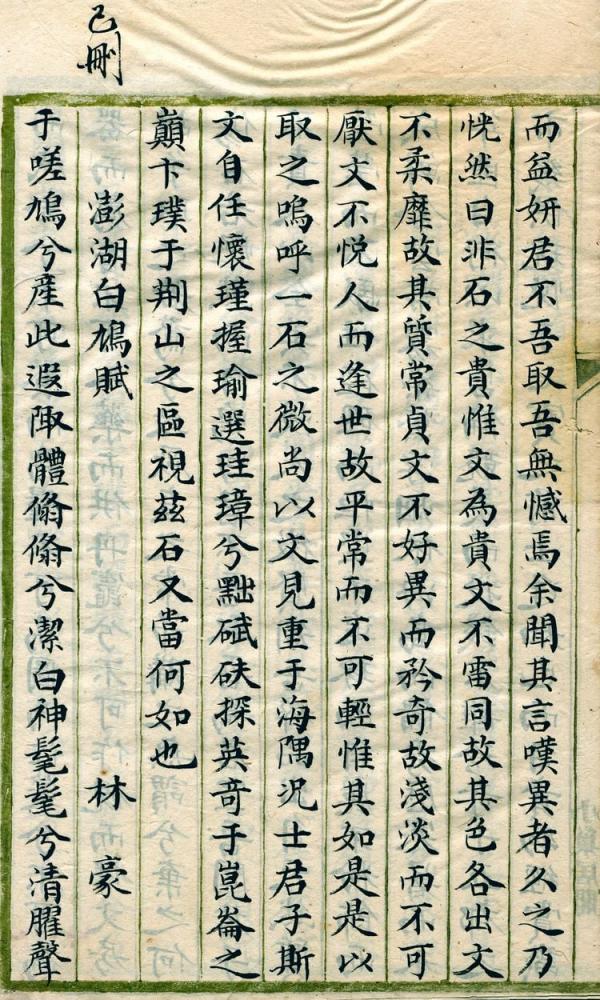 已刪
而益妍君不吾取吾無憾焉余聞其言嘆異者久之乃
恍然曰非石之貴惟文為貴文不雷同故其色各出文
不柔靡故其質常貞文不好異而矜奇故淺淡而不可
厭文不悅人而逢世故平常而不可輕惟其如是是以
取之嗚呼一石之微尚以文見重于海隅況士君子斯
文自任懷瑾握瑜選珪璋兮黜碔砆探英奇于崑崙之
巔卞璞于荆山之區視茲石又當何如也
澎湖白鳩賦 林豪
于嗟鳩兮產此遐陬體翛翛兮潔白神髦髦兮清臞聲